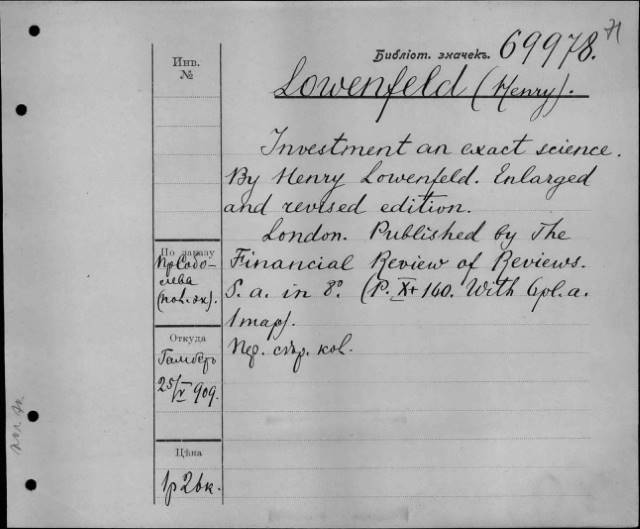 Библіот. значекъ. 69978.
Инв.
№
Lowenfeld (Henry).
Investment an exact science.
By Henry Lowenfeld. Enlarged
and revised edition.
London. Published by The
Financial Review of Reviews.
S. a. in 8º. (P. X+160. With 6pl. a.
1 map).
По заказу
Откуда
25/V 909.
Цѣна
1р 26к.